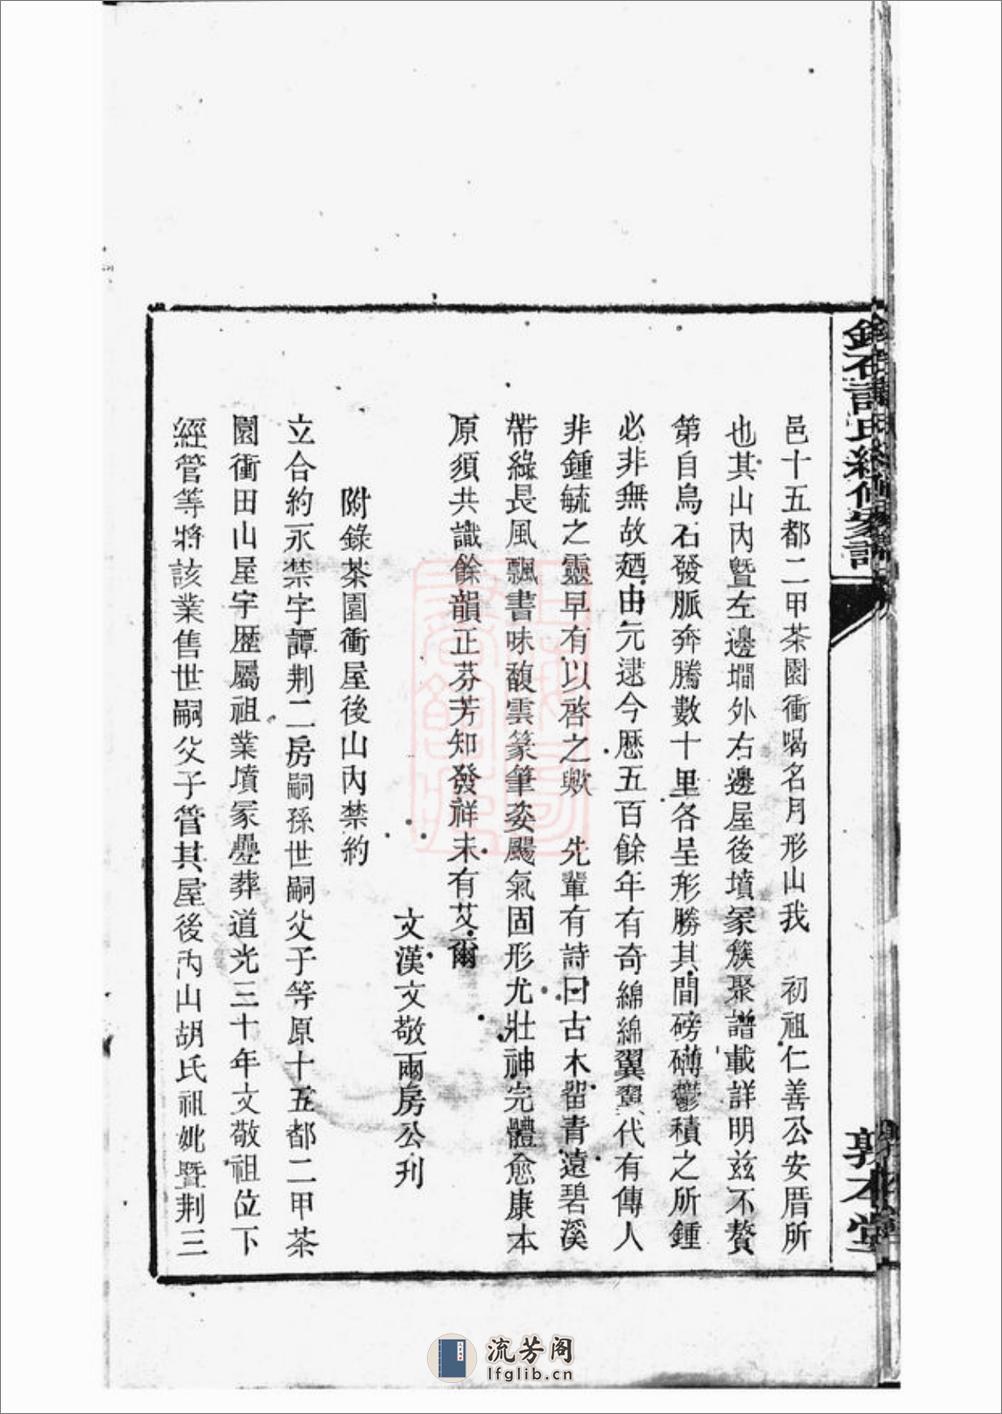 邑十五都二甲茶園衝喝名月形山我　初祖仁善公安厝所
也其山內暨左邊墹外右邊屋後墳冢簇聚譜載詳明茲不贅
第自烏石發脈奔騰數十里各呈形勝其間磅礴鬱積之所鍾
必非無故廼由元逮今歷五百餘年有奇綿綿翼翼代有傳人
非鍾毓之靈早有以啓之歟　先輩有詩曰古木留青遠碧溪
帶綠長風飄書味馥雲篆筆姿颺氣固形尤壯神完體愈康本
原須共識餘韻正芬芳知發祥未有艾爾
文漢文敬兩房公刋
附錄茶園衝屋後山內禁約
立合約永禁字譚荆二房嗣孫世嗣父子等原十五都二甲茶
園衝田山屋宇歷屬祖業墳冢疊葬道光三十年文敬祖位下
經管等將該業售世嗣父子管其屋後內山胡氏祖妣暨荆三
敦本堂
流芳阁
lfglib.cn